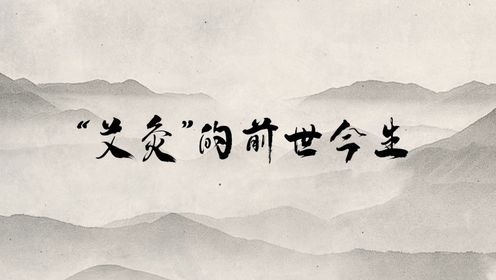 “艾灸”的前世今生